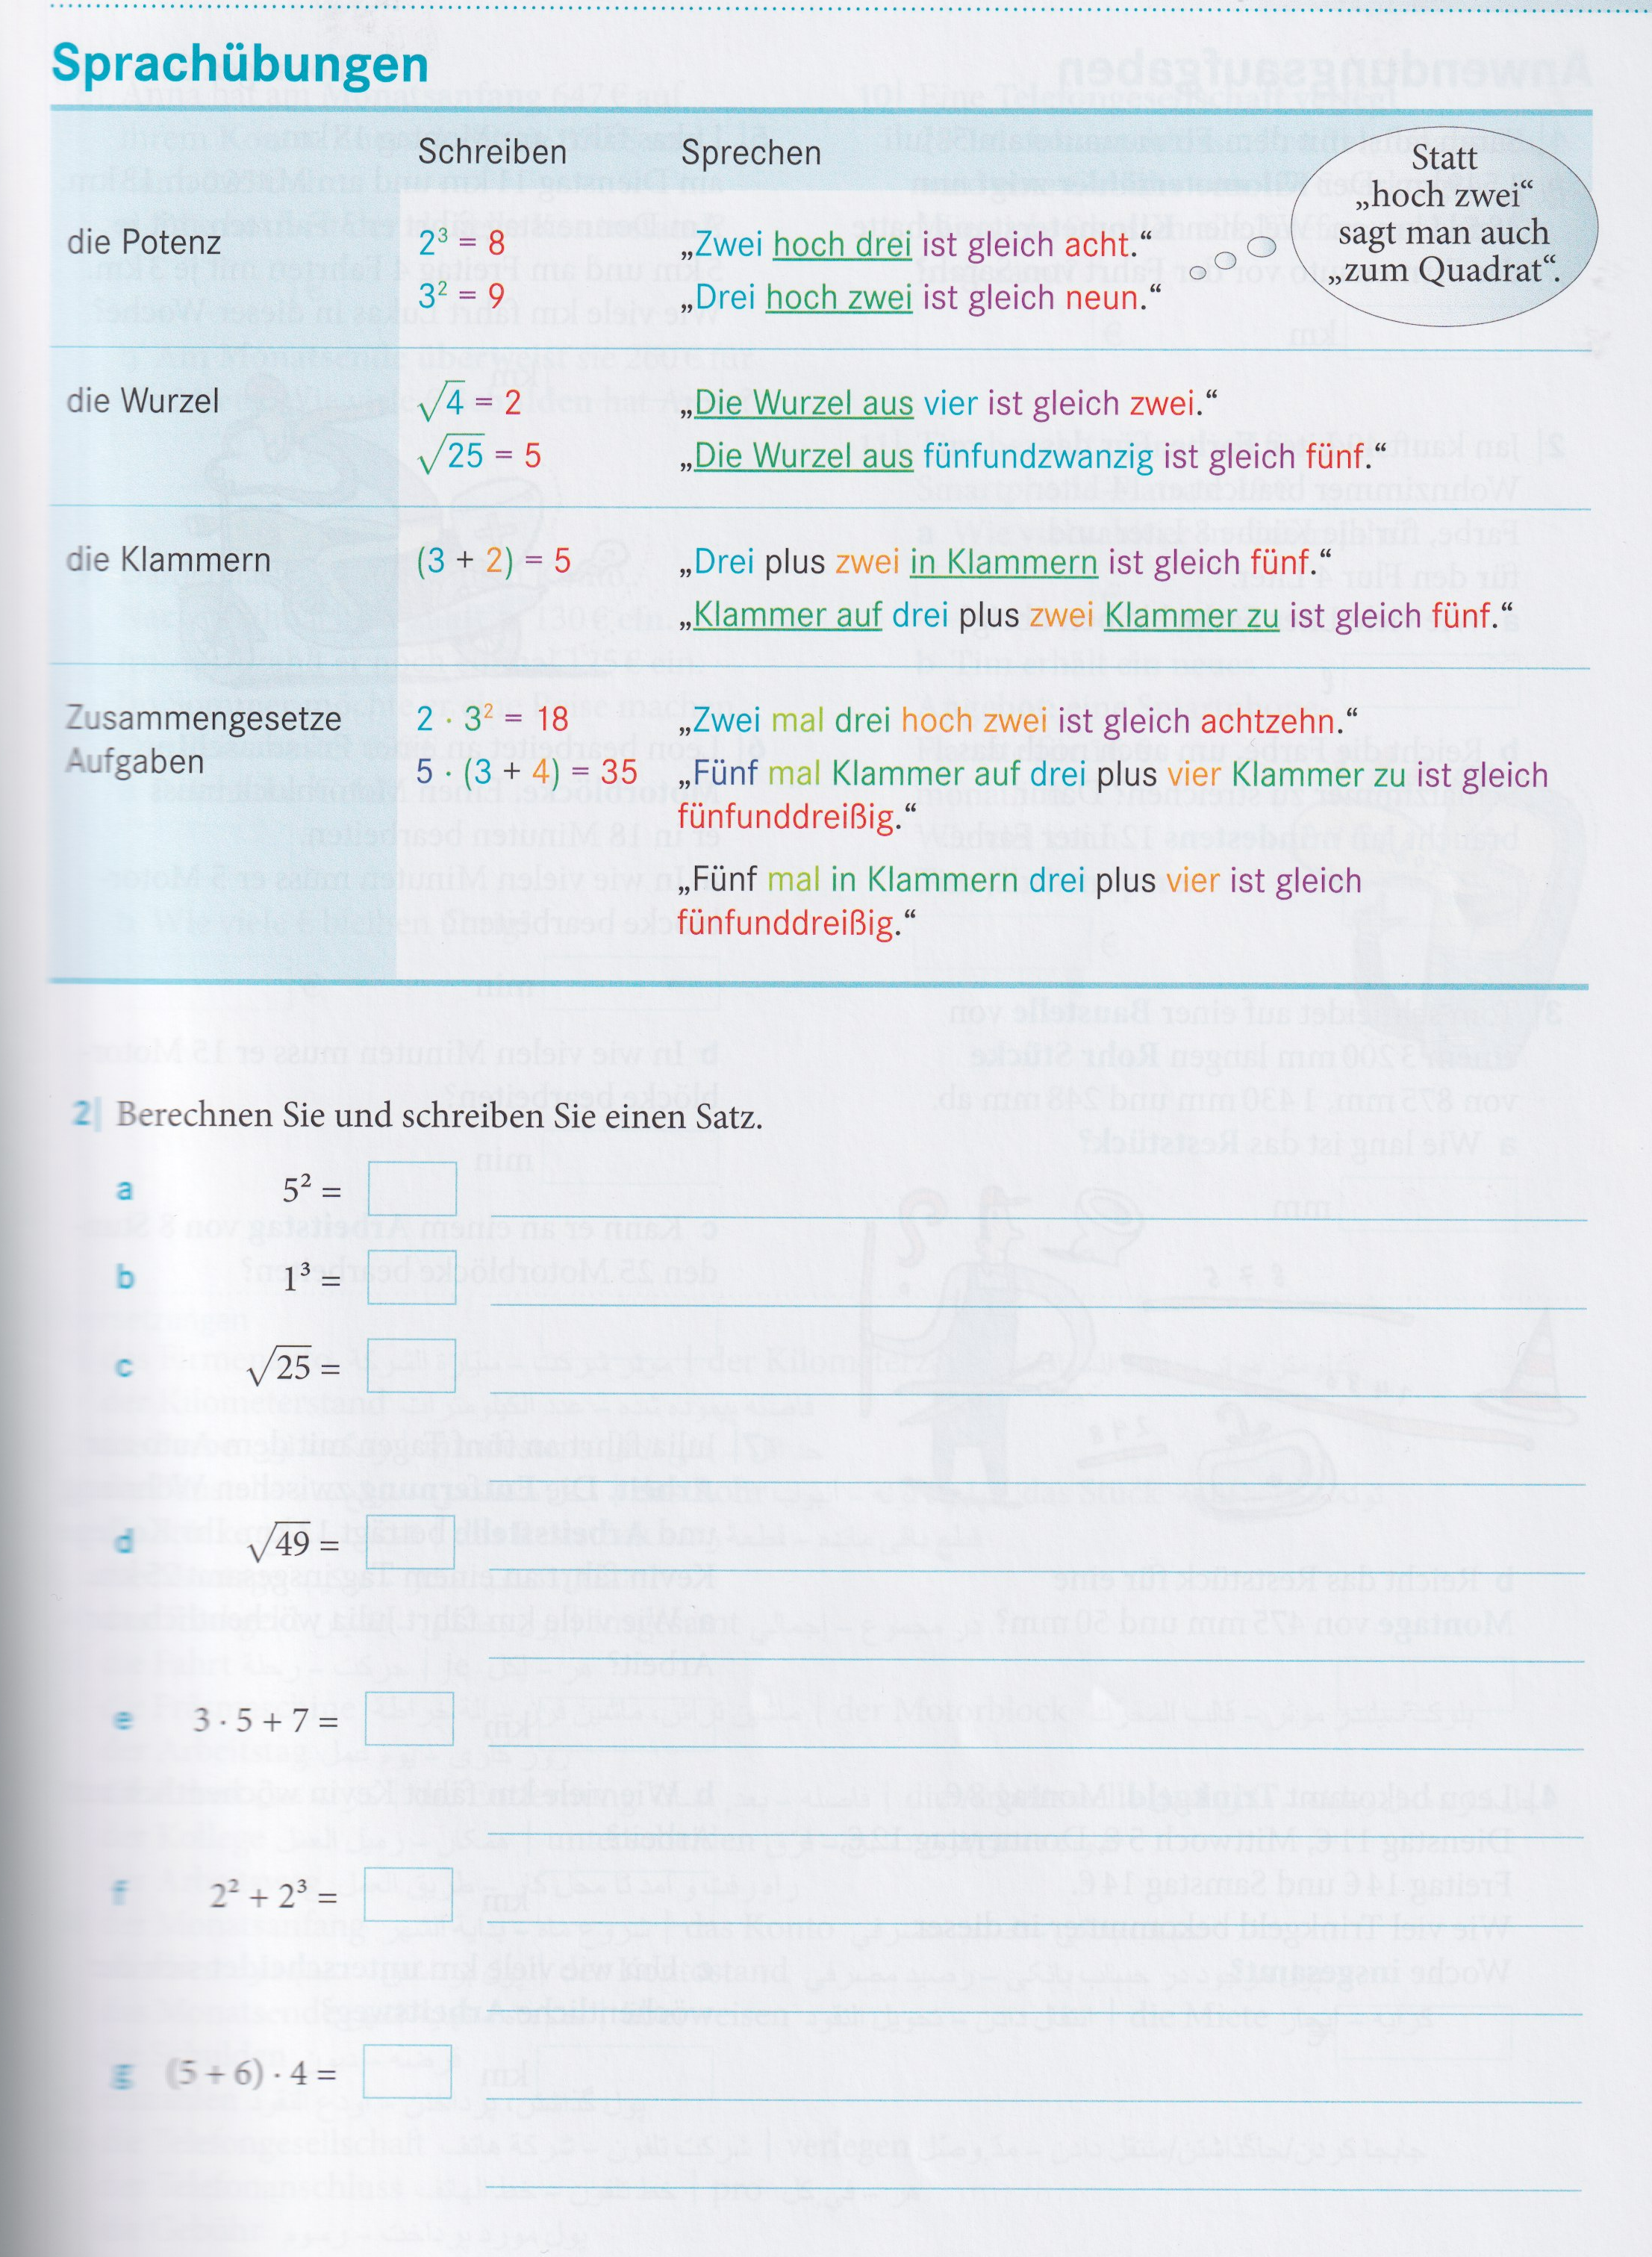 Sprachübungen
Schreiben Sprechen
Statt
„hoch zwei“
sagt man auch
„zum Quadrat“.
die Potenz 2³ = 8 „Zwei hoch drei ist gleich acht.“
3² = 9 „Drei hoch zwei ist gleich neun.“
die Wurzel √4 = 2 „Die Wurzel aus vier ist gleich zwei.“
√25 = 5 „Die Wurzel aus fünfundzwanzig ist gleich fünf.“
die Klammern (3 + 2) = 5 „Drei plus zwei in Klammern ist gleich fünf.“
„Klammer auf drei plus zwei Klammer zu ist gleich fünf.“
Zusammengesetze 2 · 3² = 18 „Zwei mal drei hoch zwei ist gleich achtzehn.“
Aufgaben 5 · (3 + 4) = 35 „Fünf mal Klammer auf drei plus vier Klammer zu ist gleich
fünfunddreißig.“
„Fünf mal in Klammern drei plus vier ist gleich
fünfunddreißig.“
2| Berechnen Sie und schreiben Sie einen Satz.
a 5² =
b 1³ =
c √25 =
d √49 =
e 3 · 5 + 7 =
f 2² + 2³ =
g (5 + 6) · 4 =